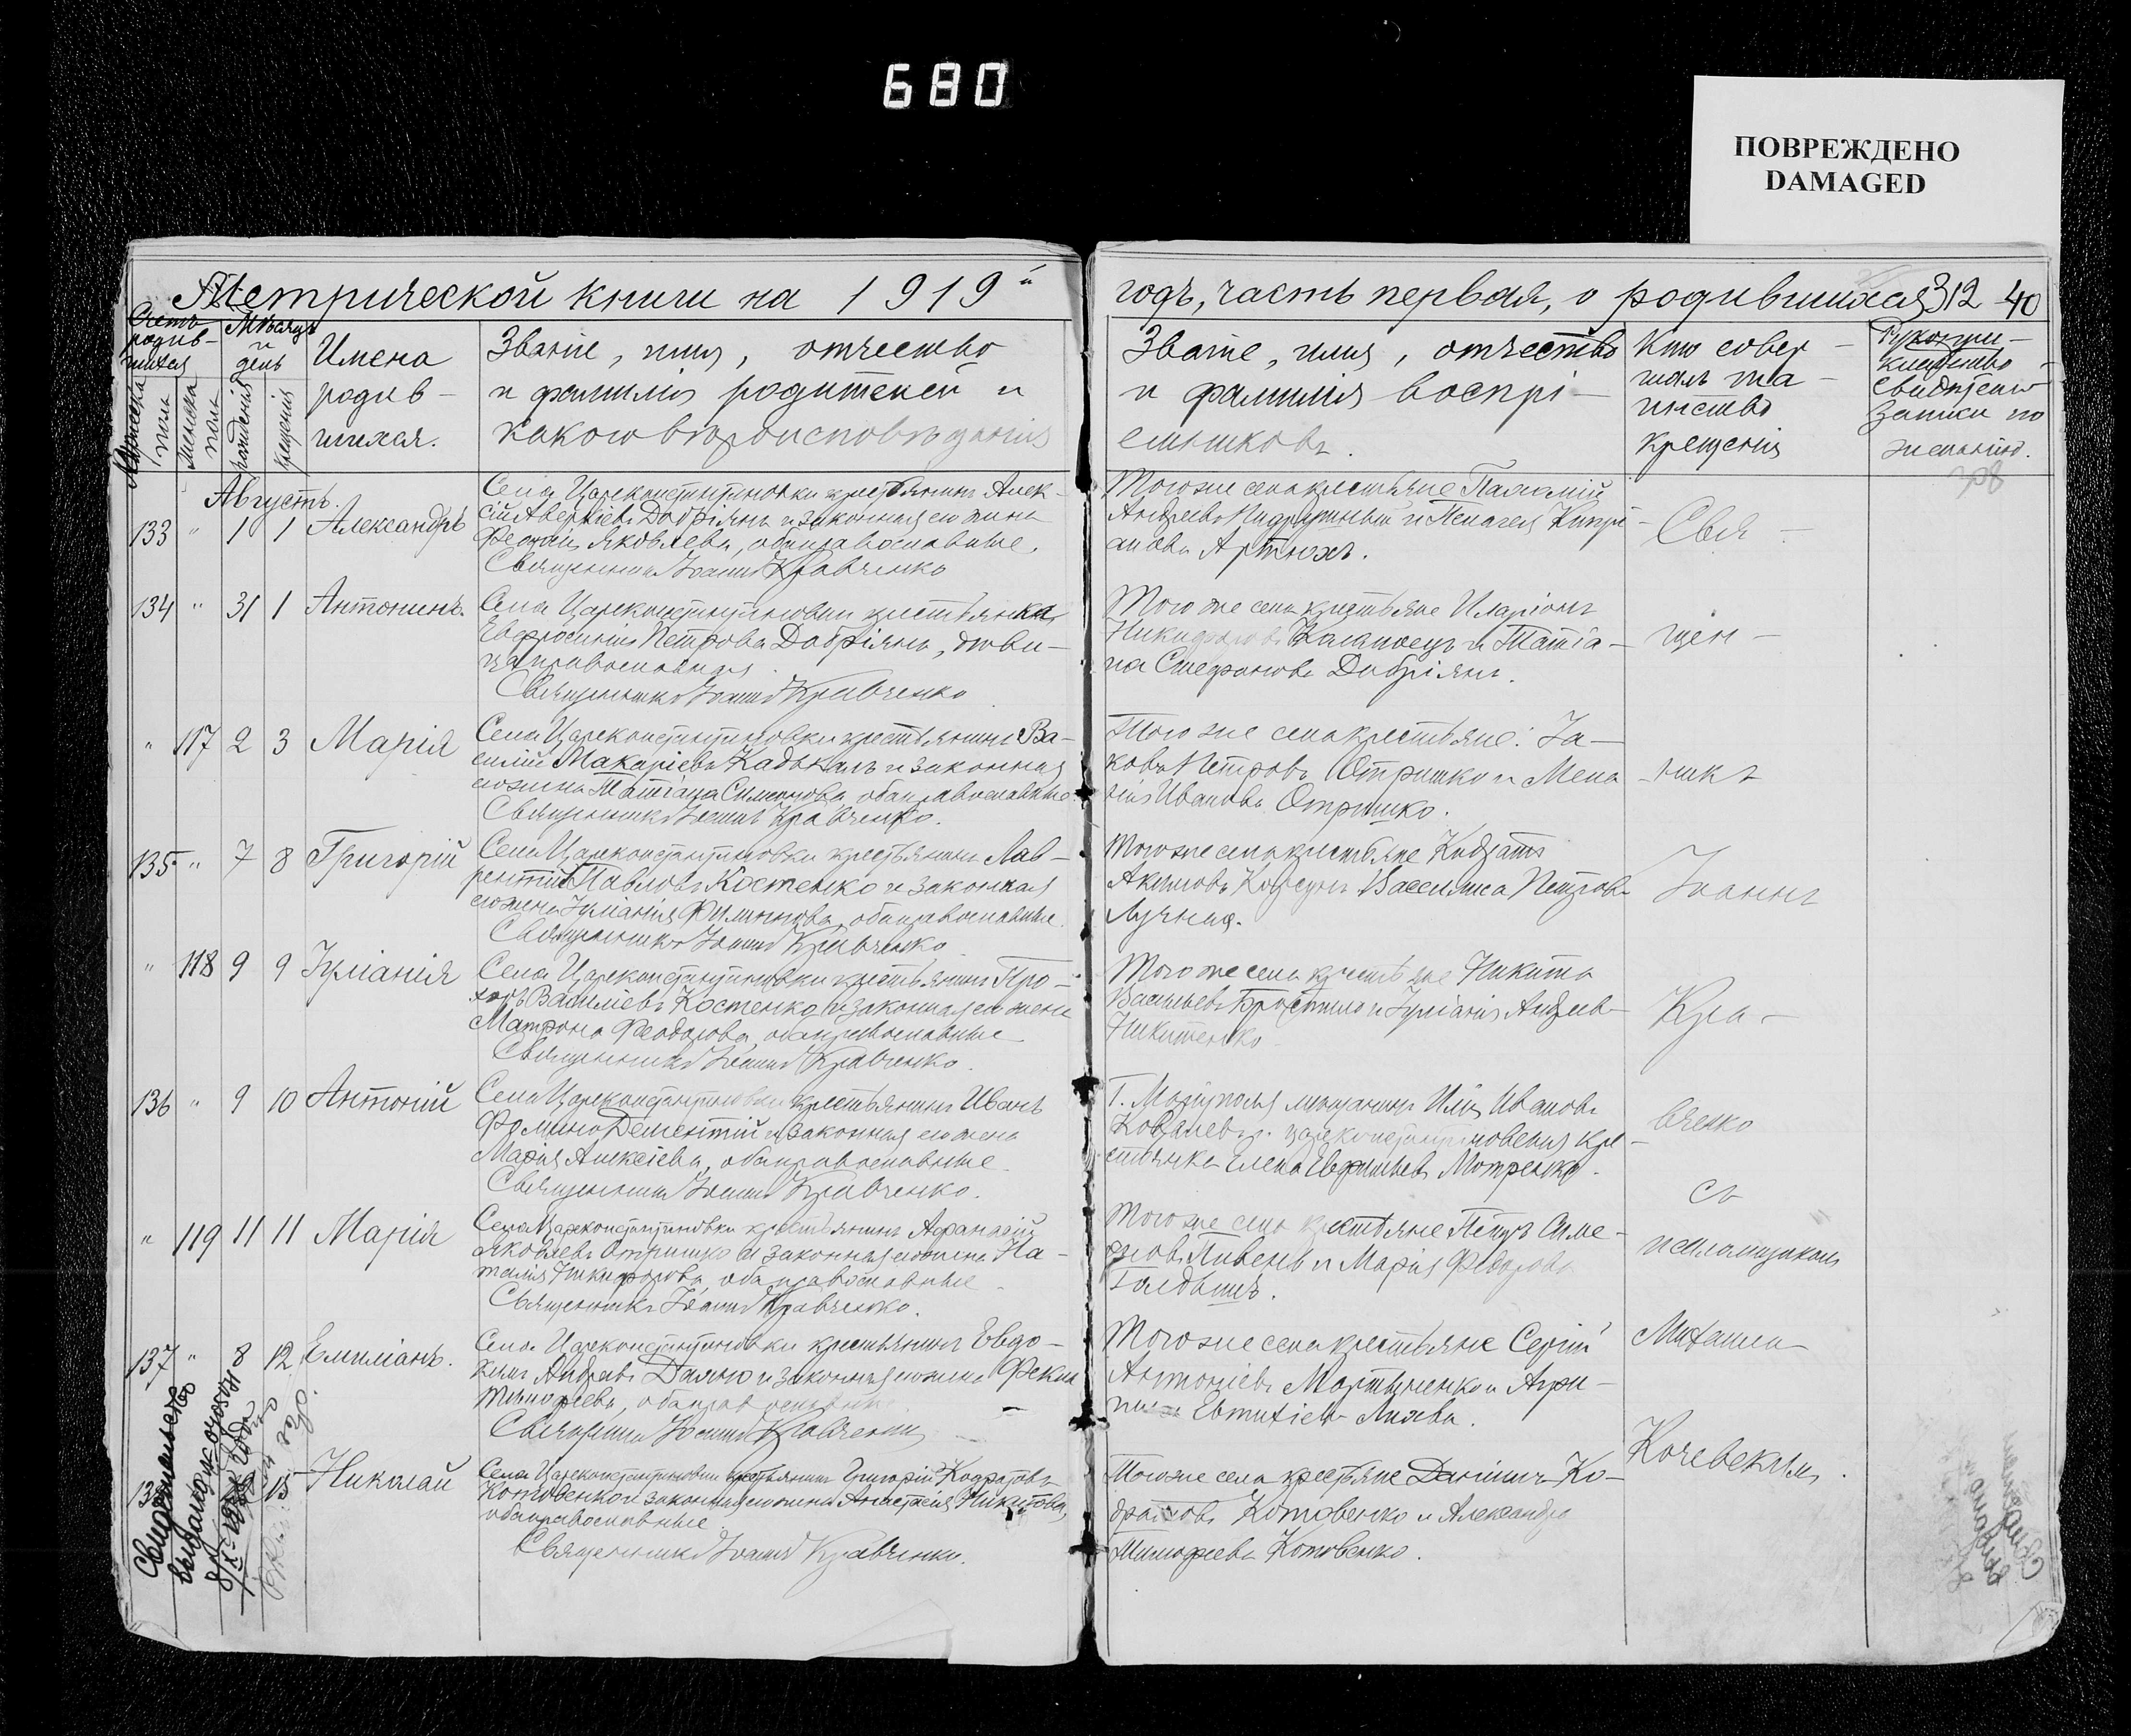 680
ПОВРЕЖДЕНО
DAMAGED
Метрической книги на 1919й
годъ, часть первая, о родившихся 312 40
Счетъ
родив-
шихся
Мужеска
пола
Женска
пола
Мѣсяцъ
и
день
рожденія
крещенія
Имена
родив-
шихся.
Званіе, имя, отчество
и фамилія родителей и
какого вѣроисповѣданія
Званіе, имя, отчество
и фамилія воспрі-
емниковъ.
Кто совер-
шалъ та-
инство
крещенія
Рукопри-
кладство
свидѣтелей
записи по
желанію.
Августъ.
133 " 1 1 Александръ
Села Цареконстантиновки крестьянинъ Алек-
сій Аверкіевъ Добріянъ и законная его жена
Яковлева, оба православные.
Священникъ Іоаннъ Кравченко
Того же села крестьяне
Андреевъ и Пелагея Кипрі-
анова Артюхъ.
134 " 31 1 Антонинъ.
Села Цареконстантиновки крестьянка
Евфросинія Петрова Добріянъ, дѣви-
ца православная
Священникъ Іоаннъ Кравченко
Того же села крестьяне Иларіонъ
Никифоровъ и Татіа-
на Стефанова Добріянъ.
" 117 2 3 Марія
Села Цареконстантиновки крестьянинъ Ва-
силій Макаріевъ Кадыкалъ и законная
его жена Татіана Симонова, оба православные.
Священникъ Іоаннъ Кравченко.
Того же села крестьяне: Іа-
ковъ Петровъ Отришко и Мела
нія Иванова Отришко.
135 " 7 8 Григорій
Села Цареконстантиновки крестьянинъ Лав-
рентій Павловъ Костенко и законная
его жена Іуліанія Филиппова, оба православные.
Священникъ Іоаннъ Кравченко
Того же села крестьяне Кодратъ
Акимовъ Корсунъ Василиса Петрова
" 118 9 9 Іуліанія
Села Цареконстантиновки крестьянинъ Про-
хоръ Василіевъ Костенко и законная его жена
Матрона Феодорова, оба православные
Священникъ Іоаннъ Кравченко.
Того же села крестьяне Никита
Васильевъ и Іуліанія Андреева
Никитенко
136 " 9 10 Антоній
Села Цареконстантиновки крестьянинъ Иванъ
Фоминъ Дементій и законная его жена
Марія Алексіева, оба православные.
Священникъ Іоаннъ Кравченко.
Г. Маріуполя мещанинъ Илія Ивановъ
Ковалевъ и цареконстантиновская кре-
стьянка Елена Евфимьева Мотренко.
" 119 11 11 Марія
Села Цареконстантиновки крестьянинъ Афанасій
Яковлевъ Отришко и законная его жена На-
талія Никифорова, оба православные
Священникъ Іоаннъ Кравченко.
Того же села крестьяне Петръ Симе-
оновъ Пивень и Марія Федорова
Галдышъ.
137 " 8 12 Емиліанъ.
Села Цареконстантиновки крестьянинъ Евдо-
кимъ Андреевъ и законная его жена Фекла
Тимофеева, оба православные
Священникъ Іоаннъ Кравченко
Того же села крестьяне Сергій
Антоніевъ Мартыненко и Агри-
пина Евтихіева
15 Николай
Села Цареконстантиновки крестьянинъ Григорій Кодратовъ
Котовенко и законная его жена Анастасія Никитова,
оба православные
Священникъ Іоаннъ Кравченко.
Того же села крестьяне Даніилъ Ко-
дратовъ Котовенко и Александра
Тимофеева Котовенко.
Свя-
щен-
никъ
Іоаннъ
Кра-
вченко
съ
псаломщикомъ
Михаиломъ
Кочевскимъ.
Свидетельство
выдано